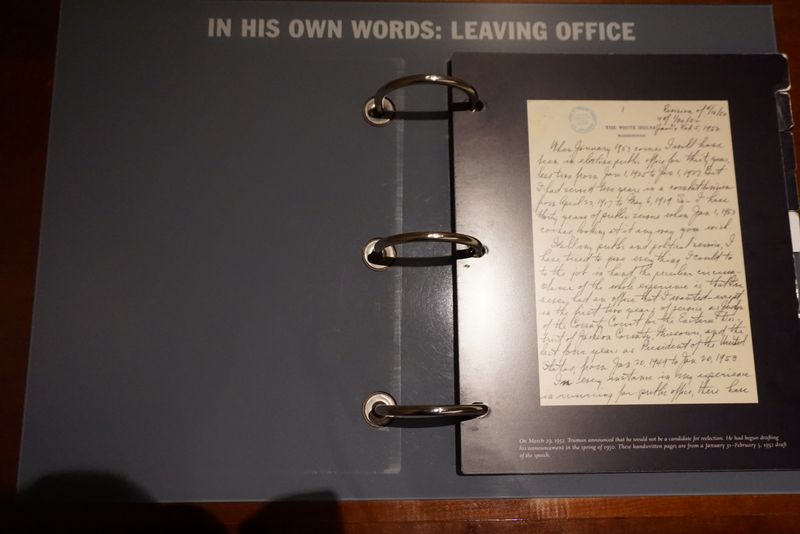 IN HIS OWN WORDS: LEAVING OFFICE
THE WHITE HOUSE
WASHINGTON
When January 1953 comes I will have
been in elective public office for thirty years,
less two from Jan 1, 1925 to Jan 1, 1927. But
I had served two years in a
from April 22, 1917 to May 6, 1919 So I have
thirty years of public service when Jan 1, 1953
comes, looking at it any way you wish.
In all my public and political service, I
have tried to give everything I could to
to the job in hand the peculiar circum-
stance of the whole experience is that I
never had an office that I wanted except
in the first two years of service as Judge
of the County Court for the Eastern Dist-
rict of Jackson County, Missouri, and the
last four years as President of the United
States, from Jan 20, 1949 to Jan 20, 1953
In every instance in my experience
in running for public office, there have
On March 29, 1952, Truman announced that he would not be a candidate for reelection. He had begun drafting
his announcement in the spring of 1950. These handwritten pages are from a January 31–February 5, 1952 draft
of the speech.